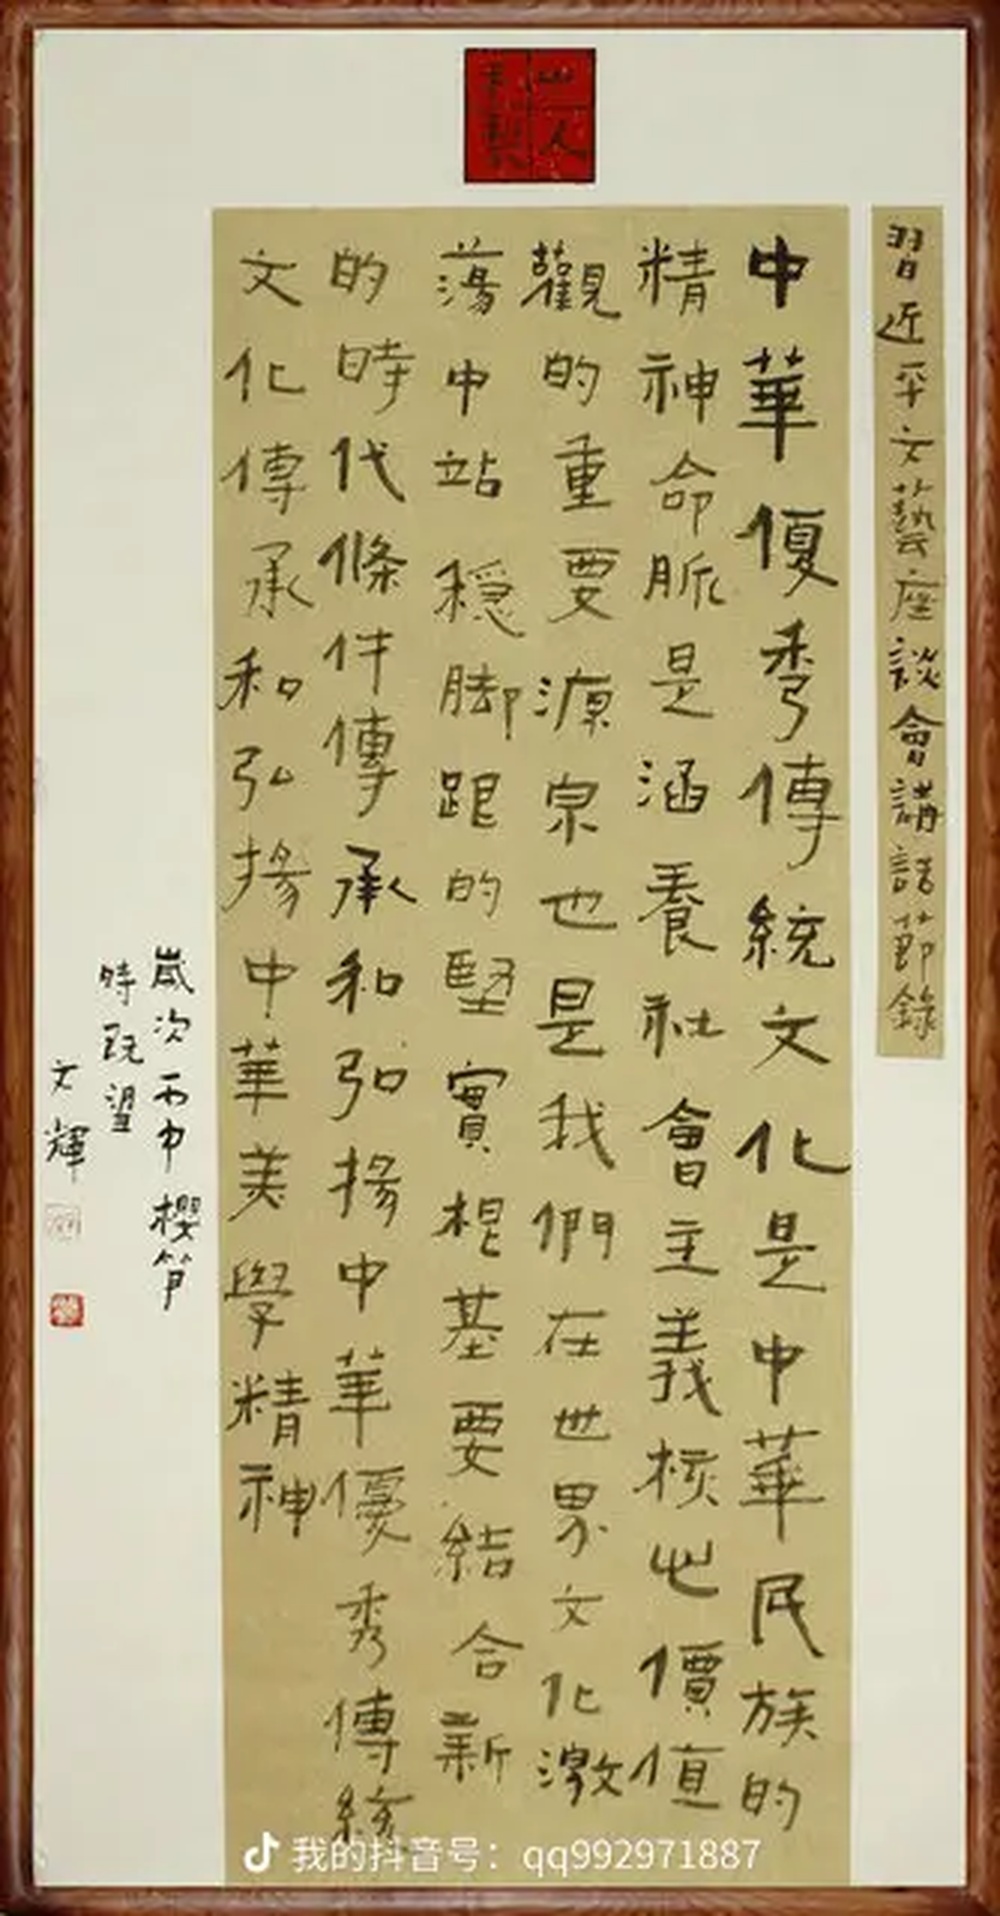 山人
習近平文藝座談會講話節錄
中華優秀傳統文化是中華民族的
精神命脈是涵養社會主義核心價值
觀的重要源泉也是我們在世界文化激
蕩中站穩脚跟的堅實根基要結合新
的時代條件傳承和弘揚中華優秀傳統
文化傳承和弘揚中華美學精神
歲次丙申櫻笋
時既望
文輝
我的抖音号：qq992971887